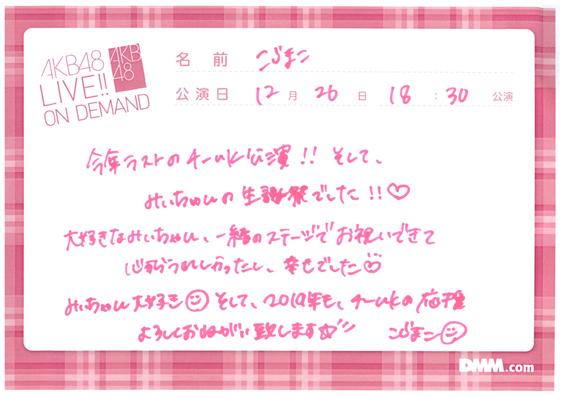 AKB48
LIVE!!
ON DEMAND
AKB
48
名前 こじまこ
公演日 12月26日 18:30 公演
今年ラストのチームK公演!! そして、
みぃちゃんの生誕祭でした!!♡
大好きなみぃちゃん、一緒のステージでお祝いできて
心からうれしかったし、幸せでした♡
みぃちゃん大好き☺そして、2019年も、チームKの応援
よろしくおねがい致します☆ こじまこ☺
DMM.com